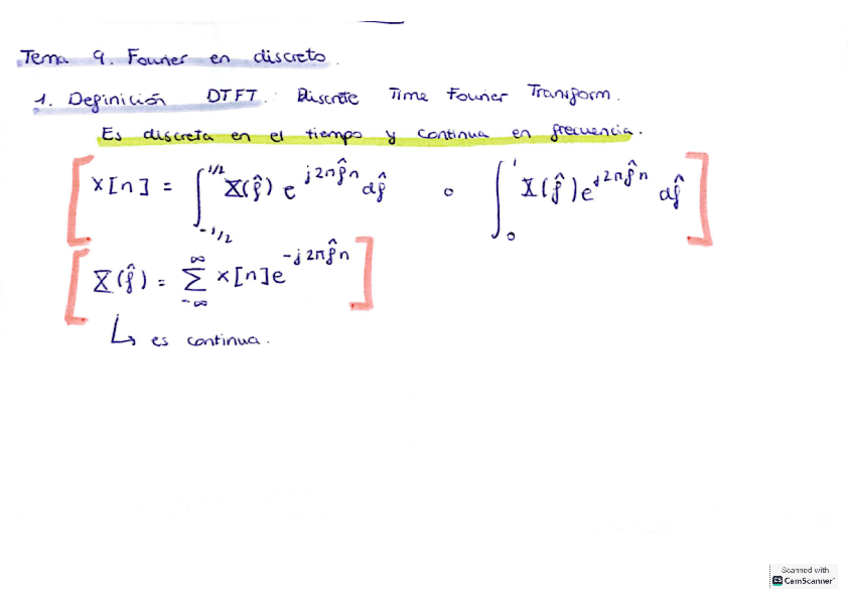 Tema 9. Fourier en discreto.
1. Definición DTFT: Discrete Time Fourier Transform.
Es discreta en el tiempo y continua en frecuencia.
x[n] = ∫_{-1/2}^{1/2} X(f̂) e^{j2πf̂n} df̂ o ∫_0^1 X(f̂) e^{j2πf̂n} df̂
X(f̂) = Σ_{-∞}^{∞} x[n] e^{-j2πf̂n}
↳ es continua.
Scanned with
CS CamScanner